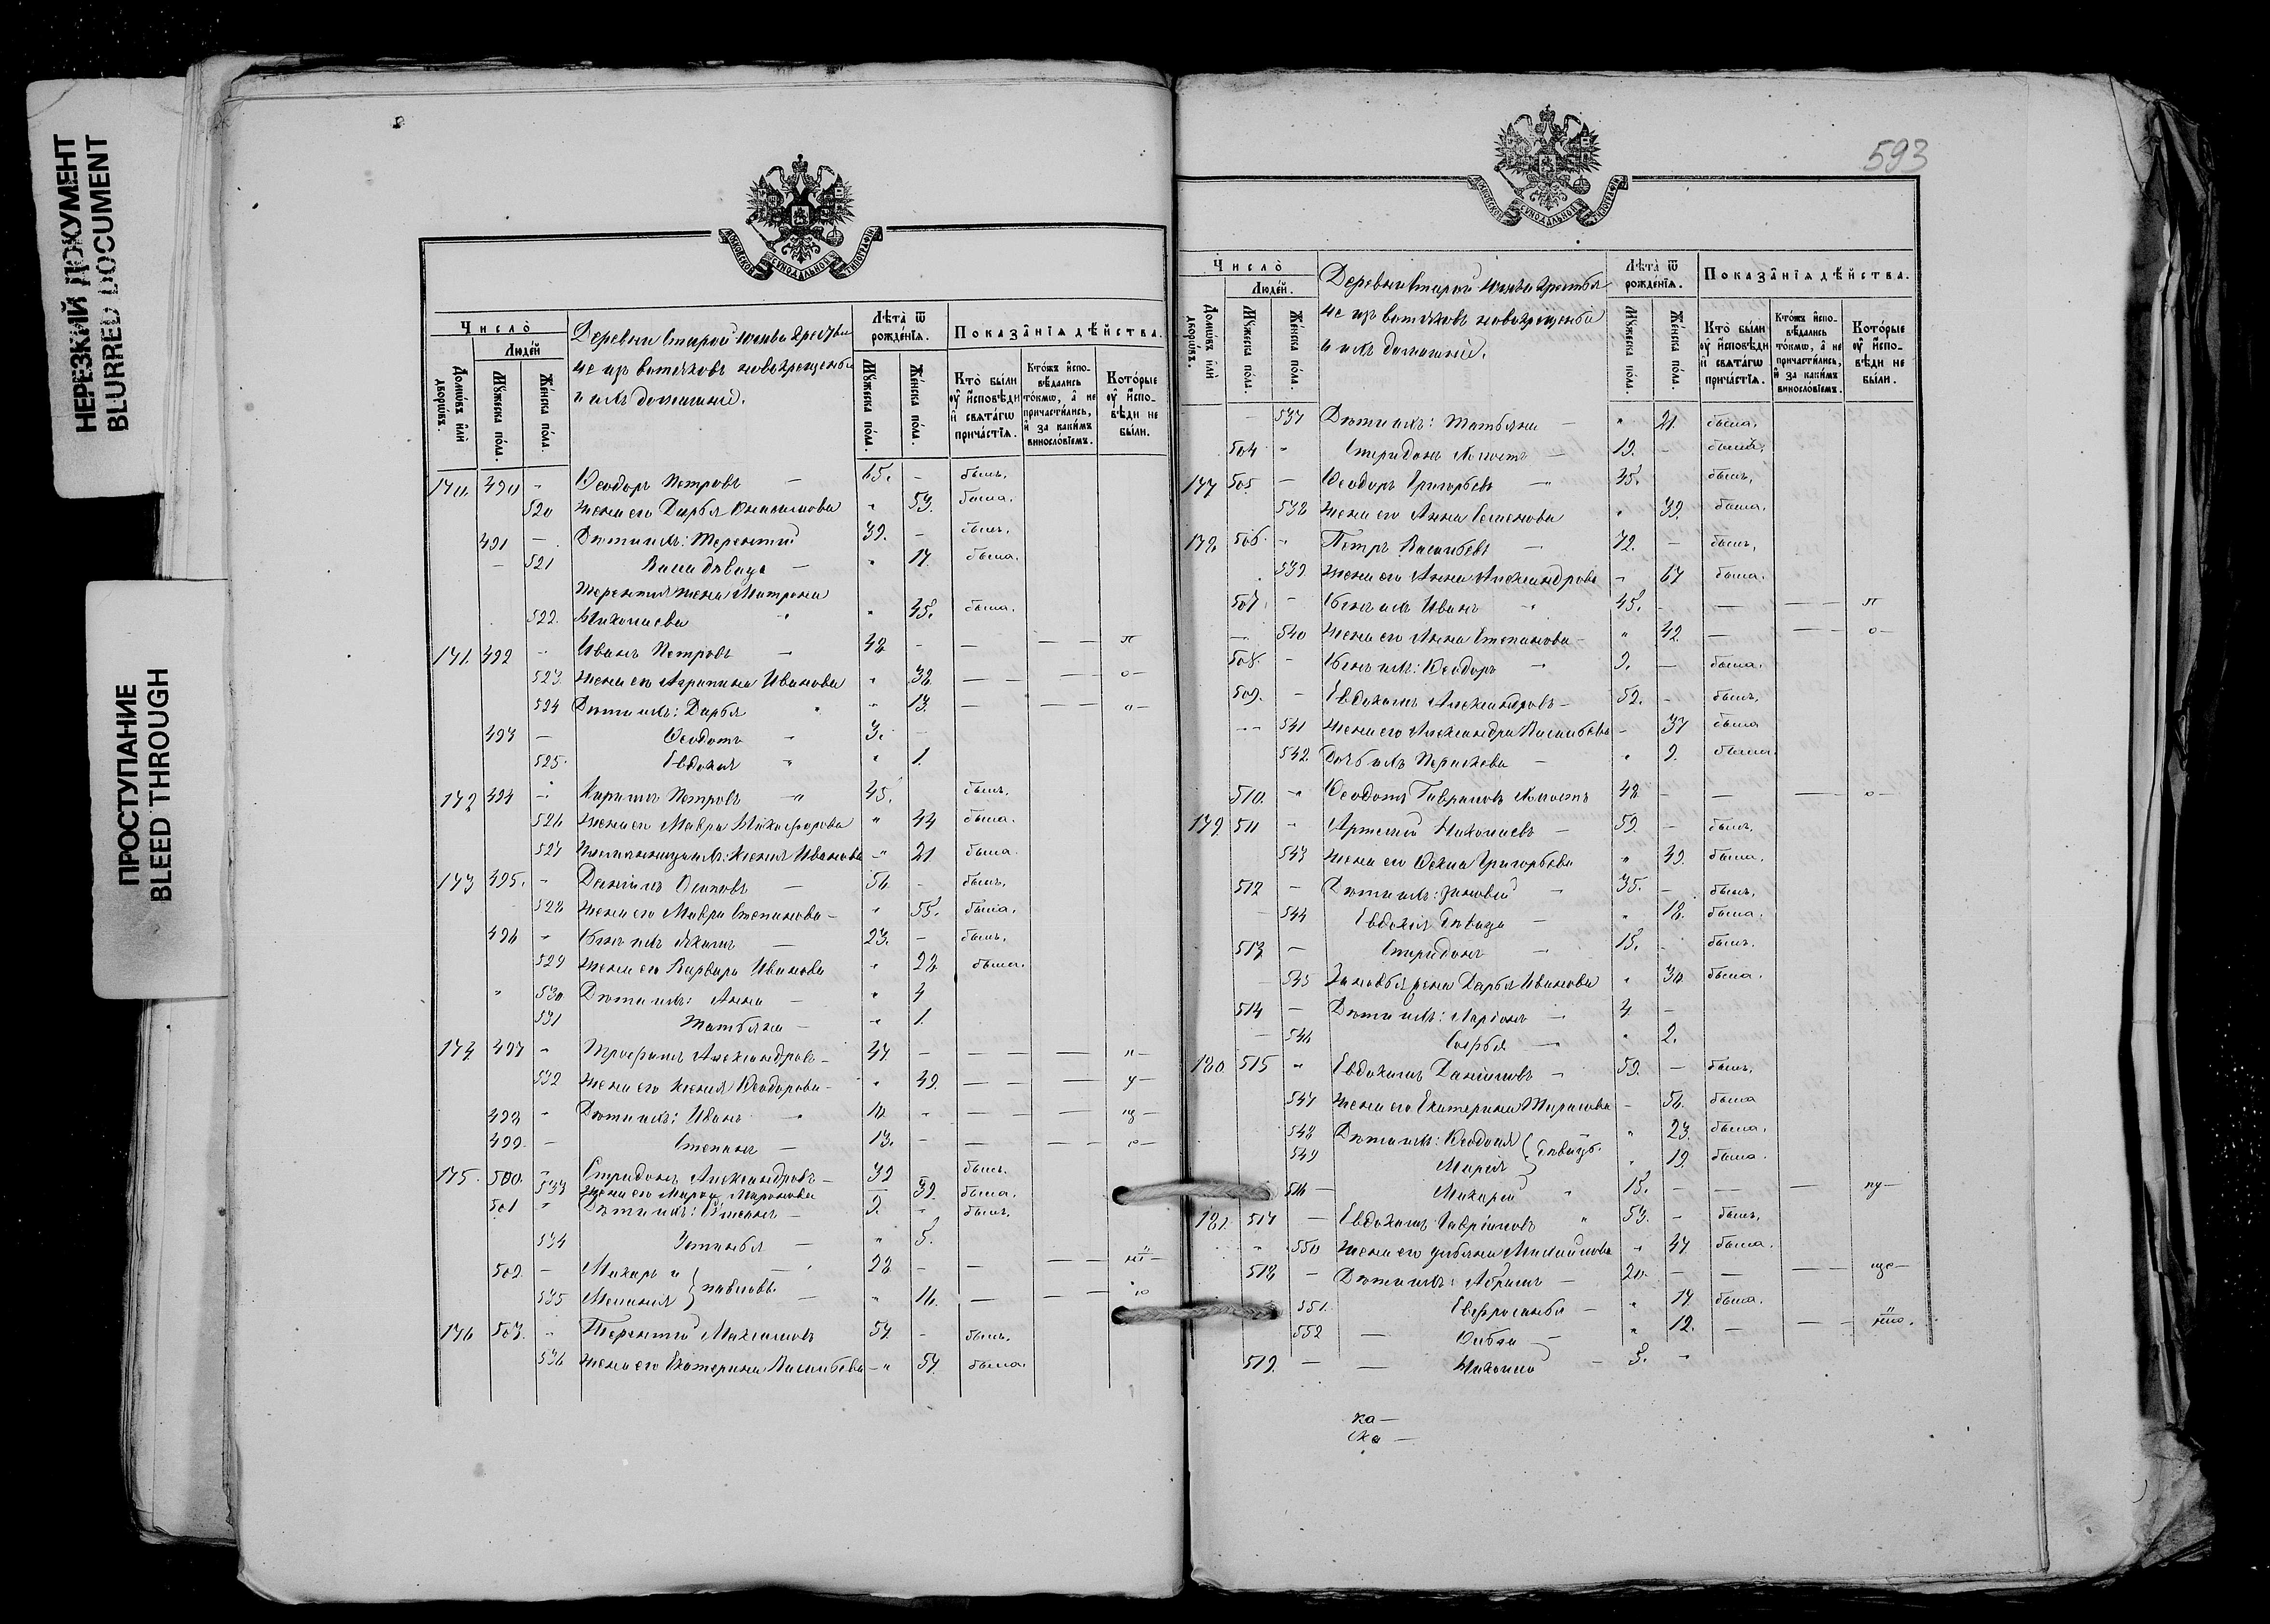 НЕРЕЗКИЙ ДОКУМЕНТ
BLURRED DOCUMENT
ПРОСТУПАНИЕ
BLEED THROUGH
МОСКОВСКОЙ СѴНОДАЛЬНОЙ ТИПОГРАФІИ
Число̀
Людей
Домѡвъ и҆лѝ дворѡвъ.
Мꙋжеска пола.
Женска пола.
Деревни Старой Юмьи крестья
не изъ вотяковъ новокрещены
и ихъ домашніе.
Лѣта̀ ѿ рожденїѧ.
Мꙋжеска пола.
Женска пола.
Показанїѧ дѣйства.
Кто̀ были ᲂу҆ и҆сповѣди и҆ свѧтагѡ причастїѧ.
Ктожъ и҆сповѣдались токмѡ, а҆ не причастились, и҆ за какимъ винословїемъ.
Которые ᲂу҆ и҆сповѣди не были.
170. 490 - Ѳеодоръ Петровъ - 65. - былъ.
520 жена его Дарья Онисимова " 53. была.
491 - Дѣти ихъ: Терентій 39. - былъ.
- 521 дѣвица - " 17. была.
Терентія жена Матрона
522. Николаева " " 45. была.
171. 492 - Иванъ Петровъ - 48 - - - - п
523. жена его Агрипина Иванова " 38 - - - о-
524 Дѣти ихъ: Дарья " " 13. - - - о-
493 - Ѳеодотъ - 3. -
525. Евдокія " " 1.
172 494 - Петровъ - 45. былъ.
526 жена его Мавра Никифорова " 44 была.
527 племянница ихъ: Ксенія Иванова - " 21 была.
173 495. - Даніилъ Осиповъ - 56 - былъ.
528 жена его Мавра Степанова - " 55. была.
496 - Сынъ ихъ Іакимъ - 23. - былъ.
529 жена его Варвара Иванова " 22 была.
" 530 Дѣти ихъ: Анна - " 4
531 Татьяна - " 1.
174. 497 " Трофимъ Александровъ - 47. - - - - п-
532 жена его Ксенія Ѳеодорова - " 49. - - - у-
498 " Дѣти ихъ: Иванъ " 18. " - - - щ-
499 - Степанъ - 13. - - - - е-
175. 500. - Спиридонъ Александровъ - 39 былъ.
533 жена его Марѳа Миронова - 39. была.
501 " Дѣти ихъ: - 9. " былъ.
534 Устинья - " 5.
502. - Макаръ и } Павловы. 28. - - - -
535 Меланія - " 16. - - -
176 503. " Терентій Максимовъ 57 - былъ.
536 жена его Екатерина Васильева - " 57. была.
593
МОСКОВСКОЙ СѴНОДАЛЬНОЙ ТИПОГРАФІИ
Число̀
Людей.
Домѡвъ и҆лѝ дворѡвъ.
Мꙋжеска пола.
Женска пола.
Деревни Старой Юмьи крестья
не изъ вотяковъ новокрещены
и ихъ домашніе.
Лѣта̀ ѿ рожденїѧ.
Мꙋжеска пола.
Женска пола.
Показанїѧ дѣйства.
Кто̀ были ᲂу҆ и҆сповѣди и҆ свѧтагѡ причастїѧ.
Ктожъ и҆сповѣдались токмѡ, а҆ не причастились, и҆ за какимъ винословїемъ.
Которые ᲂу҆ и҆сповѣди не были.
- 537 Дѣти ихъ: Татьяна - " 21. была.
504 " Спиридонъ холостъ - 19. - былъ.
177 505 - Ѳеодоръ Григорьевъ - 45. былъ.
538 жена его Анна Семенова " 39. была.
178. 506 - Петръ Васильевъ - 72. - былъ.
539. жена его Анна Александрова - 67 была.
507. - Сынъ ихъ Иванъ " 45. - - - п
- 540 жена его Анна Степанова - " 42. - - о-
508. - Сынъ ихъ: Ѳеодоръ " 9. - была.
509. - Евдокимъ Александровъ - 52. - былъ.
- 541 жена его Александра Васильева - 37 была
542. Дочь ихъ Парасковья - " 9. была.
510. - Ѳеодотъ Гавриловъ холостъ 48 - - - о-
179. 511 " Артемій Николаевъ - 59. - былъ.
543 жена его Ѳекла Григорьева " 49. была.
512 - Дѣти ихъ: Зиновей " 35. - былъ.
- 544 Евдокія дѣвица - " 18. была.
513 - Спиридонъ - 15. - былъ.
- 545 Зиновья жена Дарья Иванова " 30. была.
514 - Дѣти ихъ: Ларіонъ - 4 -
- 546 Софья - " 2.
180 515 " Евдокимъ Даниловъ - 59. - былъ.
547 жена его Екатерина Тарасова - 56. была
548 Дѣти ихъ: Ѳеодосія } дѣвицы. " 23. была.
549 Марія " 19. была.
516 - Макарій " 15. - - - пу-
181. 517 - Евдокимъ Гавриловъ " 53. - былъ.
" 550 жена его Ульяна Михайлова " 47. была.
518 - Дѣти ихъ: Абрамъ - 20. - - - ще-
551. Евфросинья - " 17. была.
552 - - " 12. - -
519. - - Николай - 5. "
ка-
ска-